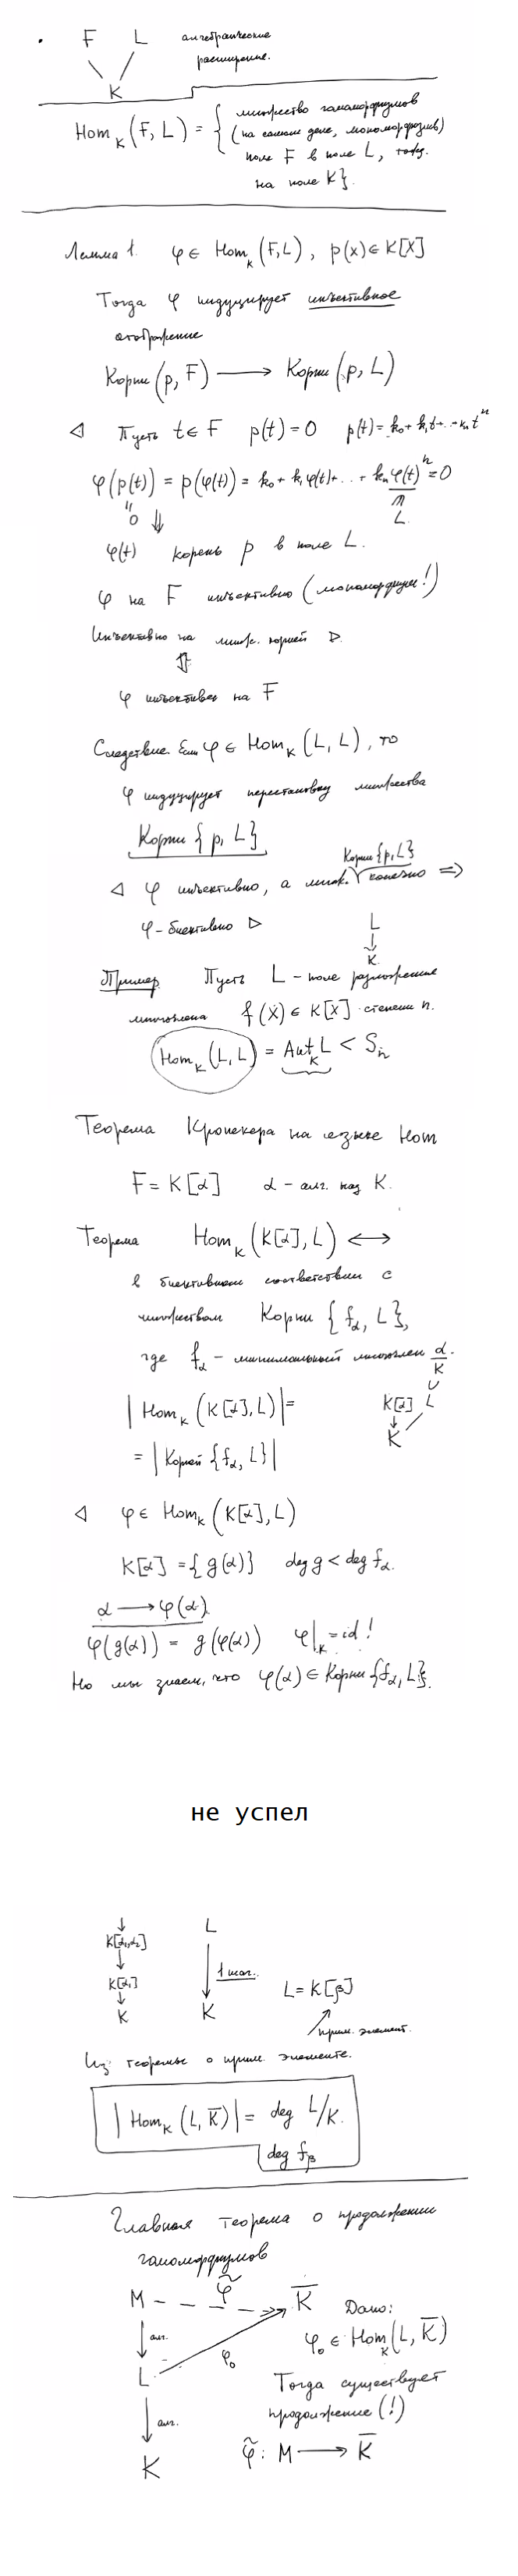 F L алгебраические
расширение.
K
Hom_K (F, L) = { множество гомоморфизмов
(на самом деле, мономорфизмов)
поле F в поле L, тожд.
на поле K}.
Лемма 1. φ ∈ Hom_K (F, L), p(x) ∈ K[X]
Тогда φ индуцирует инъективное
отображение
Корни (p, F) ⟶ Корни (p, L)
◁ Пусть t ∈ F p(t) = 0 p(t) = k₀ + k₁t + ... kₙ tⁿ
φ(p(t)) = p(φ(t)) = k₀ + k₁φ(t) + ... + kₙ φ(t)ⁿ = 0
0 ⇓ L.
φ(t) корень p в поле L.
φ на F инъективно (мономорфизм!)
Инъективно на множ. корней ▷
⇑
φ инъективен на F
Следствие. Если φ ∈ Hom_K (L, L), то
φ индуцирует перестановку множества
Корни {p, L}
Корни {p, L}
◁ φ инъективно, а множ. конечно ⟹
φ - биективно ▷
L
↓
K
Пример Пусть L - поле разложения
многочлена f(X) ∈ K[X] степени n.
Hom_K (L, L) = Aut_K L < Sₙ
Теорема Кронекера на языке Hom
F = K[α] α - алг. над K.
Теорема Hom_K (K[α], L) ⟷
в биективном соответствии с
множеством Корни {f_α, L},
где f_α - минимальный многочлен α/K.
|Hom_K (K[α], L)| =
= |Корней {f_α, L}|
K[α] L
K
◁ φ ∈ Hom_K (K[α], L)
K[α] = {g(α)} deg g < deg f_α.
α ⟶ φ(α)
φ(g(α)) = g(φ(α)) φ|_K = id!
Но мы знаем, что φ(α) ∈ Корни {f_α, L}.
не успел
↓
K[α₁,α₂]
↓
K[α₁]
↓
K
L
1 шаг.
K
L = K[β]
прим. элемент.
Из теоремы о прим. элементе.
|Hom_K (L, K̄)| = deg L/K.
deg f_β
Главная теорема о продолжении
гомоморфизмов
M - - φ̃ - - » K̄
алг.
L φ₀
алг.
K
Дано:
φ₀ ∈ Hom_K (L, K̄)
Тогда существует
продолжение (!)
φ̃ : M ⟶ K̄